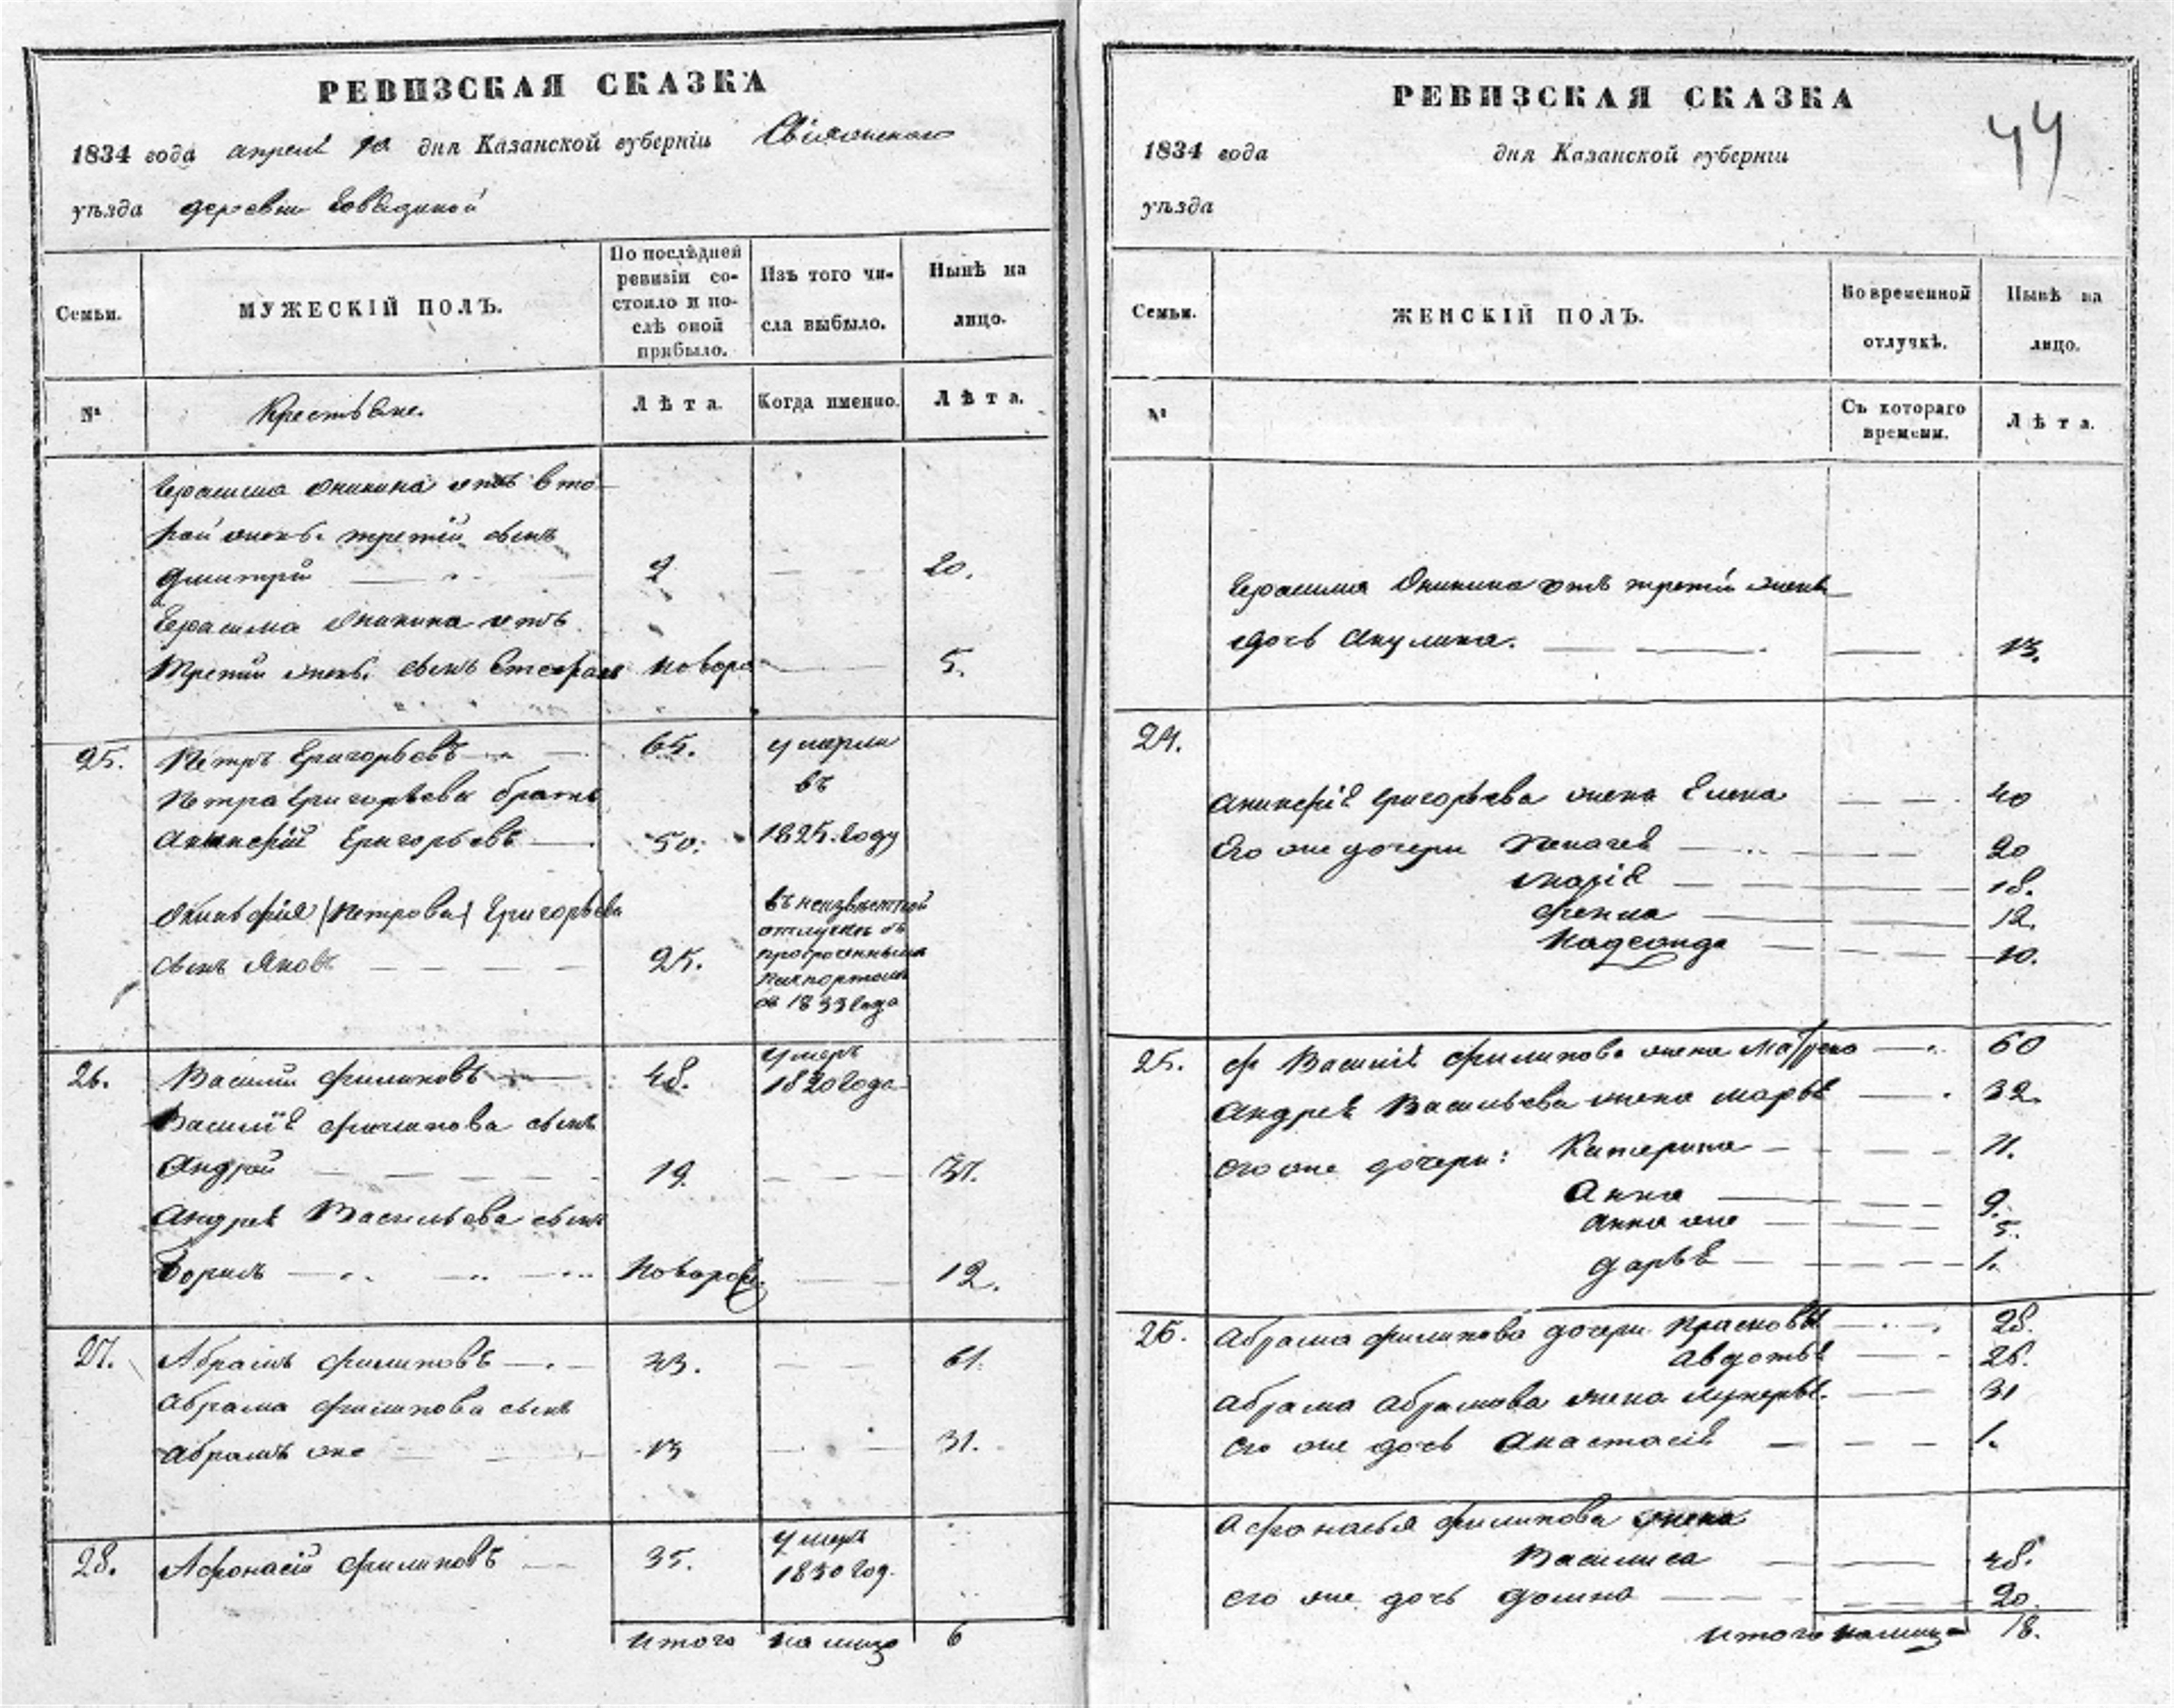 РЕВИЗСКАЯ СКАЗКА
1834 года апреля 10 дня Казанской губерніи Свіяжскаго
уѣзда деревни
Семьи.
МУЖЕСКІЙ ПОЛЪ.
По послѣдней ревизіи со-
стояло и по-
слѣ оной
прибыло.
Изъ того чи-
сла выбыло.
Нынѣ на
лицо.
№
Крестьяне.
Лѣта.
Когда именно.
Лѣта.
Герасима Аникина отъ вто-
рой жены третій сынъ
Дмитрій 2 20.
Герасима Аникина отъ
третій жены сынъ Стефанъ новоро 5.
25. Петръ Григорьевъ 65. умерли
Петра Григорьева братъ въ
Григорьевъ 50. 1825. году
(Петрова) Григорьева въ неизвестной
отлучке съ
сынъ Яковъ 25. просроченнымъ
пашпортомъ
съ 1833 года
26. Василій Филиповъ 48. умеръ
1820 года
Василія Филипова сынъ
Андрей 19. 37.
Андрея Васильева сынъ
Борисъ Новорож. 12.
27. Абрамъ Филиповъ 43. 61.
Абрама Филипова сынъ
Абрамъ же 13 31.
28. Афонасій Филиповъ 35. умеръ
1830 год.
итого на лицо 6
РЕВИЗСКАЯ СКАЗКА
44
1834 года дня Казанской губерніи
уѣзда
Семьи.
ЖЕНСКІЙ ПОЛЪ.
Во временной
отлучкѣ.
Нынѣ на
лицо.
№
Съ котораго
времени.
Лѣта.
Герасима Аникина отъ третій жены
дочь Акулина. 13.
24.
Григорьева жена Елена 40
Его же дочери 20
Марія 18.
Фекла 12.
10.
25. Василія Филипова жена Матрена 60
Андрея Васильева жена Марья 32.
его же дочери: Катерина 11.
Анна 9.
Анна же 5.
Дарья 1.
26. Абрама Филипова дочери Прасковья 28.
Авдотья 26.
Абрама Абрамова жена Лукерья. 31
его же дочь Анастасія 1.
Афонасья Филипова жена
Василиса 48.
его же дочь Домна 20.
итого налицо 18.